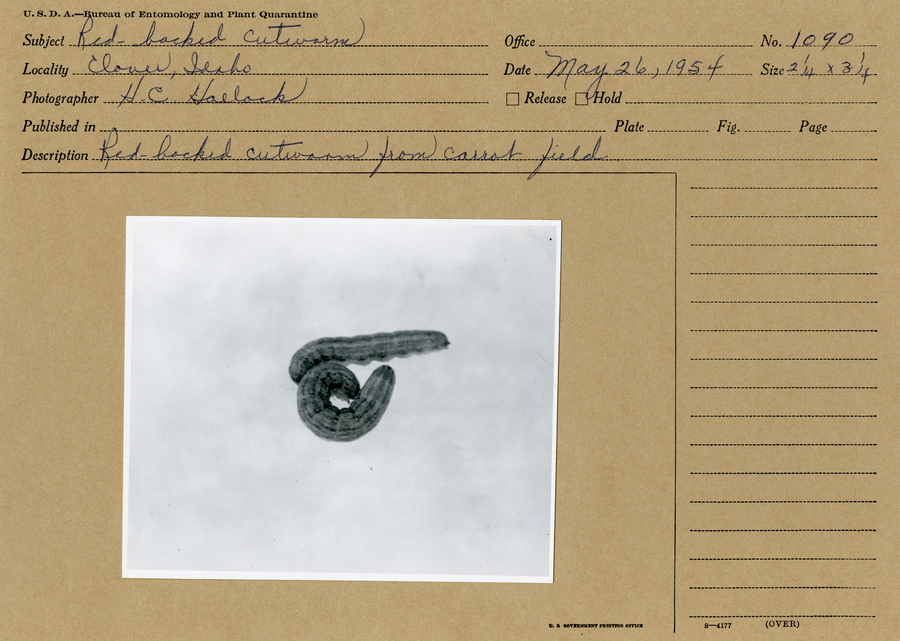 U. S. D. A.—Bureau of Entomology and Plant Quarantine
Subject Red-backed cutworm Office No. 1090
Locality Clover, Idaho Date May 26, 1954 Size 2 1/4 x 3 1/4
Photographer H. C. Hallock Release Hold
Published in Plate Fig. Page
Description Red-backed cutworm from carrot field.
U. S. GOVERNMENT PRINTING OFFICE 8—4177 (OVER)